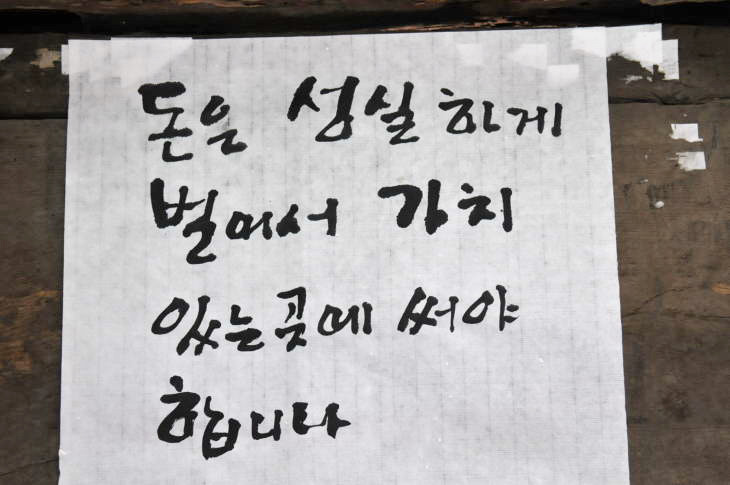 돈은 성실하게
벌어서 가치
있는곳에 써야
합니다